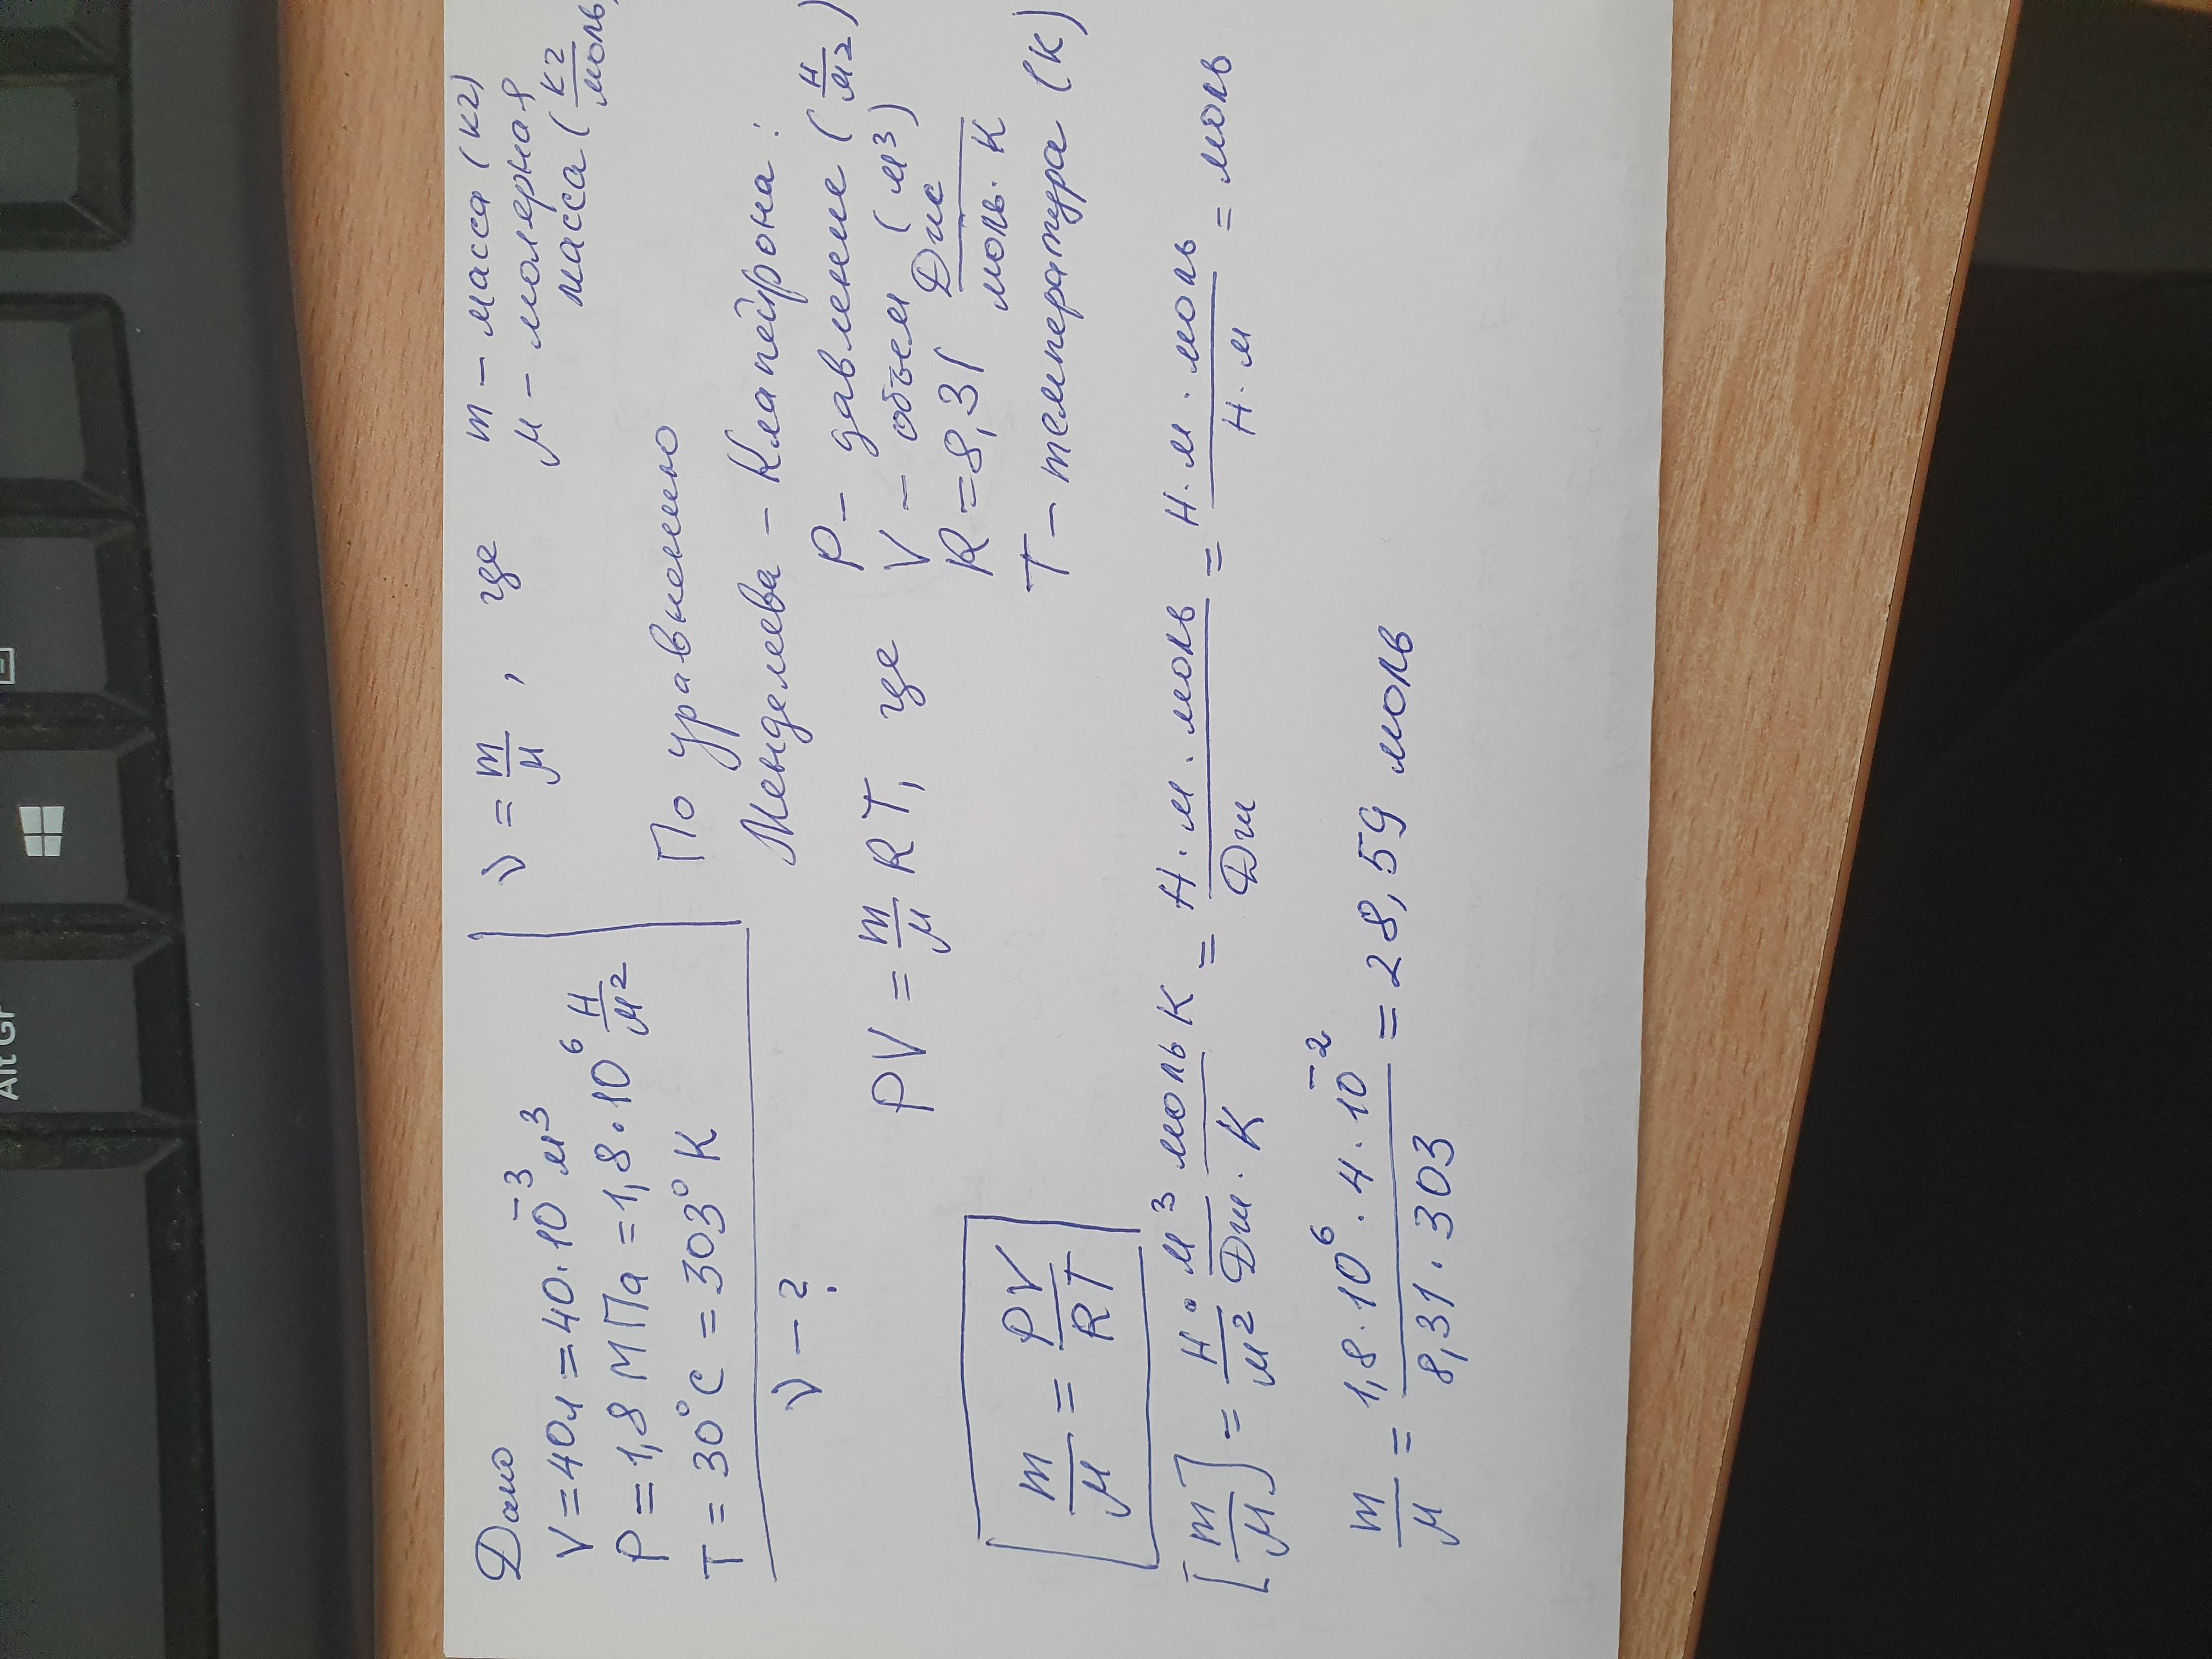 Alt Gr
Дано
V = 40л = 40·10⁻³ м³
P = 1,8 МПа = 1,8·10⁶ Н/м²
T = 30°C = 303°K
ν – ?
ν = m/μ, где
m – масса (кг)
μ – молерная
масса (кг/моль)
По уравнению
Менделеева – Клапейрона:
PV = m/μ RT, где
P – давление (Н/м²)
V – объем (м³)
R = 8,31 Дж/моль·К
T – температура (К)
m/μ = PV/RT
[m/μ] = Н/м² · м³/Дж · моль К/К = Н·м·моль/Дж = Н·м·моль/Н·м = моль
m/μ = 1,8·10⁶·4·10⁻²/8,31·303 = 28,59 моль